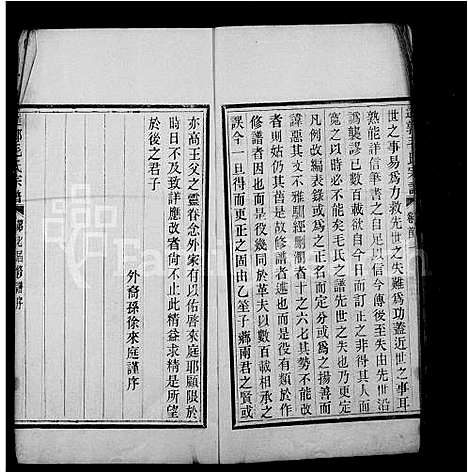 世之事易爲力救先世之失難爲功蓋近世之事耳
熟能詳信筆書之自足以信今傳後至先世沿
譌襲謬已數百載欲自今日而訂正之非得其人而
寬之以時必不能矣毛氏之譜先世之失也乃更定
凡例改編表錄或爲之正名而定分或爲之揚善而
諱惡其文不雅馴經刪潤者十之六七其勢不能不
者則姑仍其舊是故修譜者因也而一若有類於作
修譜者易是役幾同於革夫以數百載相沿相襲之
誤今一旦得而更正之固由乙笙子薌南君之賢或
亦高王父之靈眷念外家有以佑啓來庭耶顯限於
時日不及致詳應改者尙不止此精益求精是所望
於後之君子
外裔孫徐來庭謹序
毛氏宗譜